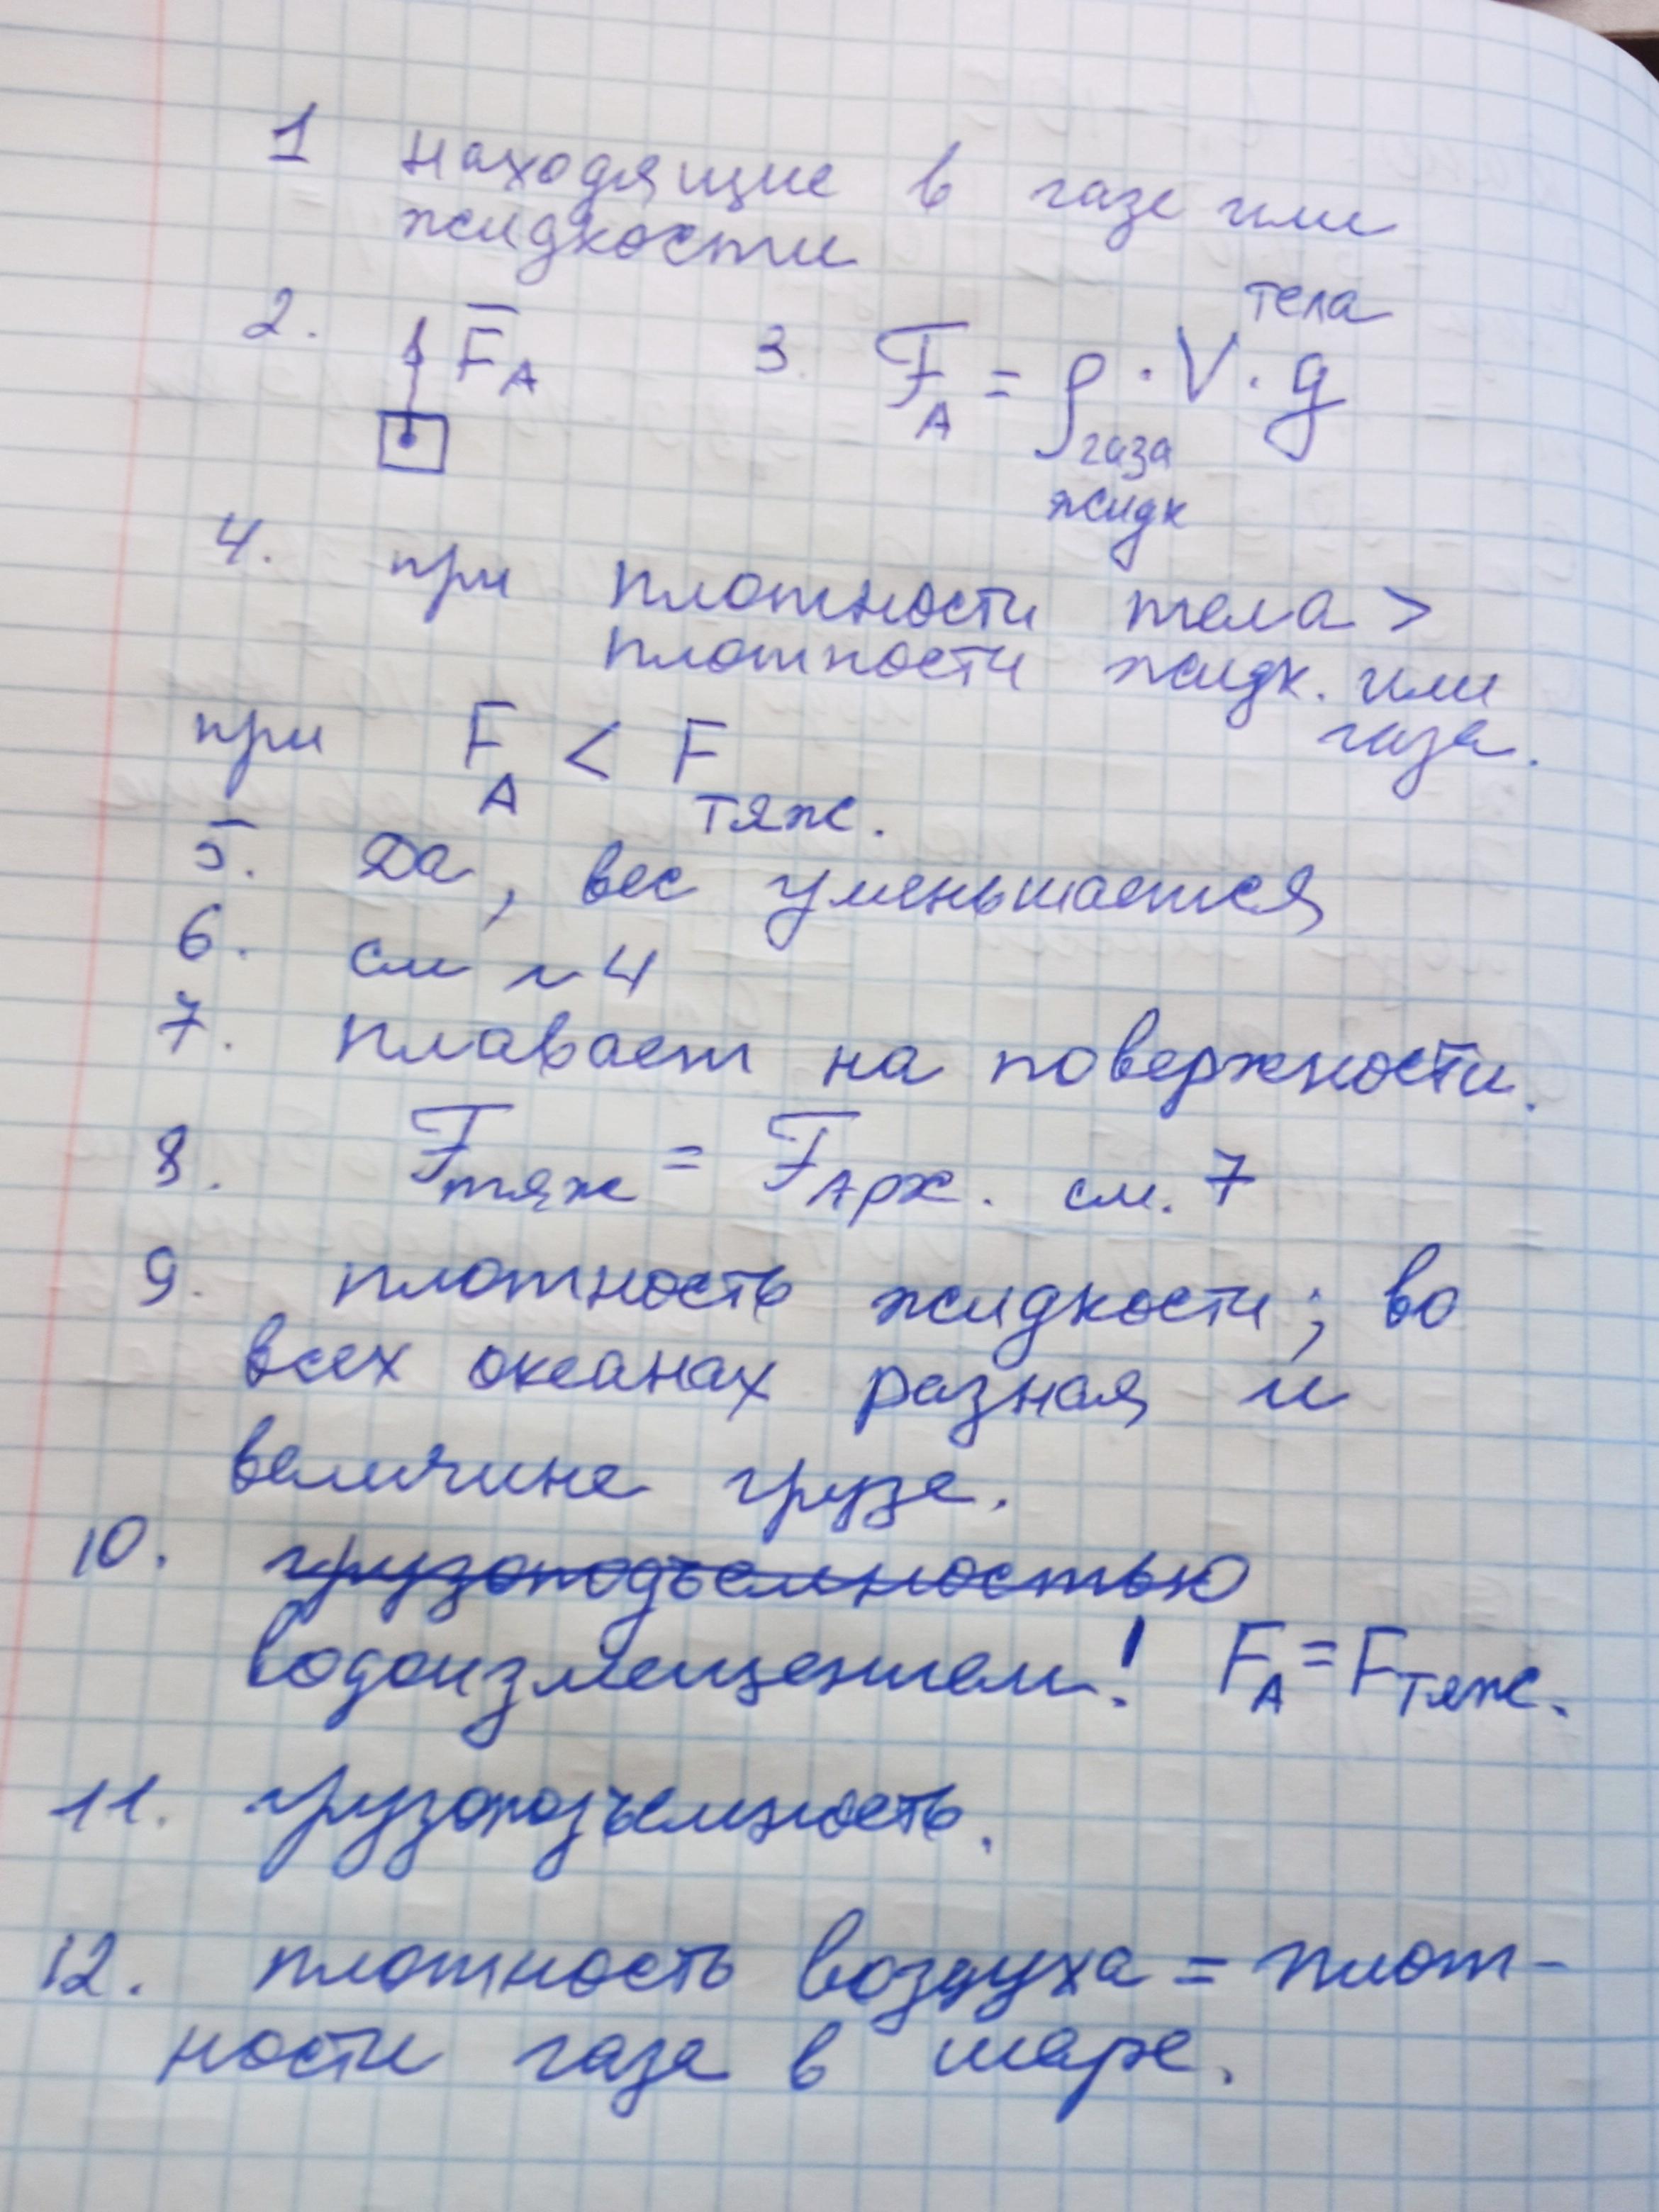 1 находящие в газе или
жидкости
2. F̅_A 3. F_A = ρ газа жидк · V тела · g
4. при плотности тела >
плотности жидк. или
газа.
при F_A < F_тяж.
5. Да, вес уменьшается
6. см н 4
7. плавает на поверхности.
8. F_тяж = F_Арх. см. 7
9. плотность жидкости; во
всех океанах разная и
величине груза.
10. ~~грузоподъемностью~~
водоизмещением! F_A = F_тяж.
11. грузоподъемность.
12. плотность воздуха = плот-
ности газа в шаре.